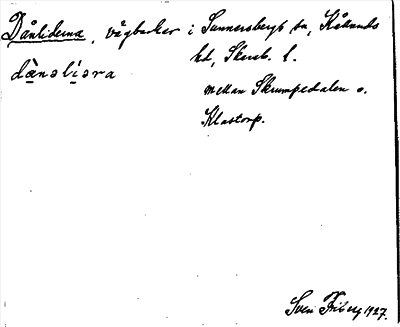 Dånliderna, vägbackar i Sunnersbergs sn, Kållands
hd, Skarab. l.
dånslisra
mellan Skrumpedalen o.
Klastorp.
Sven Friberg 1927.